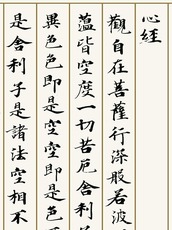 心經
觀自在菩薩行深般若波
薀皆空度一切苦厄舍利
異色色即是空空即是色
是舍利子是諸法空相不